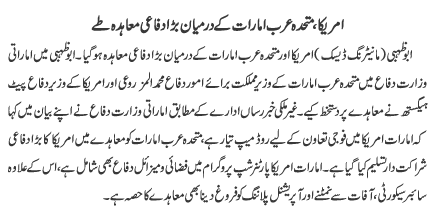 امریکا، متحدہ عرب امارات کے درمیان بڑا دفاعی معاہدہ طے
ابوظہبی (مانیٹرنگ ڈیسک) امریکا اور متحدہ عرب امارات کے درمیان بڑا دفاعی معاہدہ ہو گیا۔ ابوظہبی میں اماراتی
وزارت دفاع میں متحدہ عرب امارات کے وزیر مملکت برائے امور دفاع محمد المزروعی اور امریکا کے وزیر دفاع پیٹ
ہیگستھ نے معاہدے پر دستخط کیے۔ غیر ملکی خبر رساں ادارے کے مطابق اماراتی وزارت دفاع نے اپنے بیان میں کہا
کہ امارات امریکا میں فوجی تعاون کے لیے روڈ میپ تیار ہے، متحدہ عرب امارات کو معاہدے میں امریکا کا بڑا دفاعی
شراکت دار تسلیم کیا گیا ہے۔ امارات امریکا پارٹنرشپ پروگرام میں فضائی و میزائل دفاع بھی شامل ہے، اس کے علاوہ
سائبر سیکورٹی، آفات سے نمٹنے اور آپریشنل پلاننگ کو فروغ دینا بھی معاہدے کا حصہ ہے۔